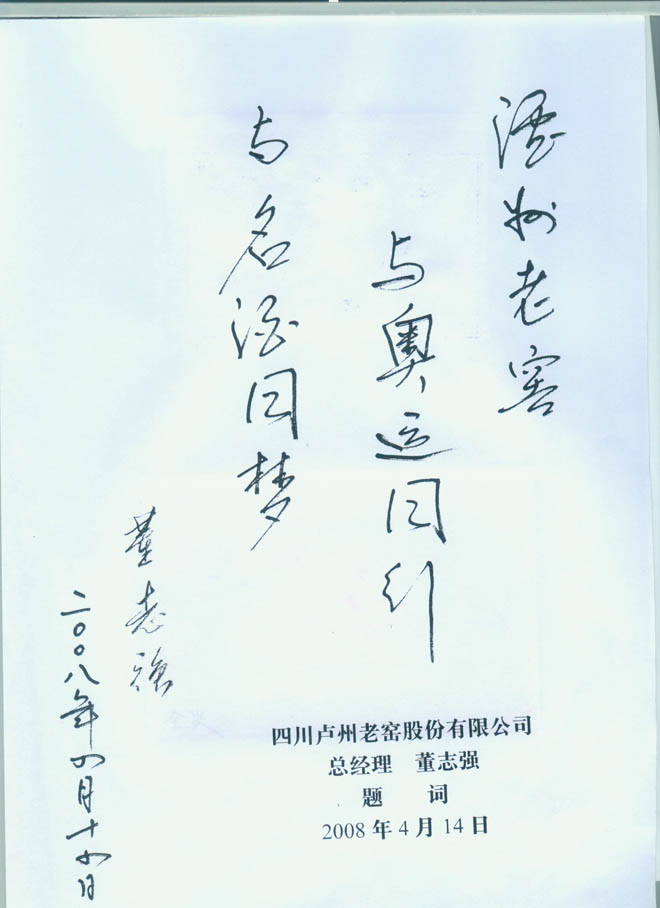 瀘州老窖
与奥运同行
与名酒同梦
董志強
二〇〇八年四月十四日
四川卢州老窑股份有限公司
总经理 董志强
题 词
2008 年 4 月 14 日